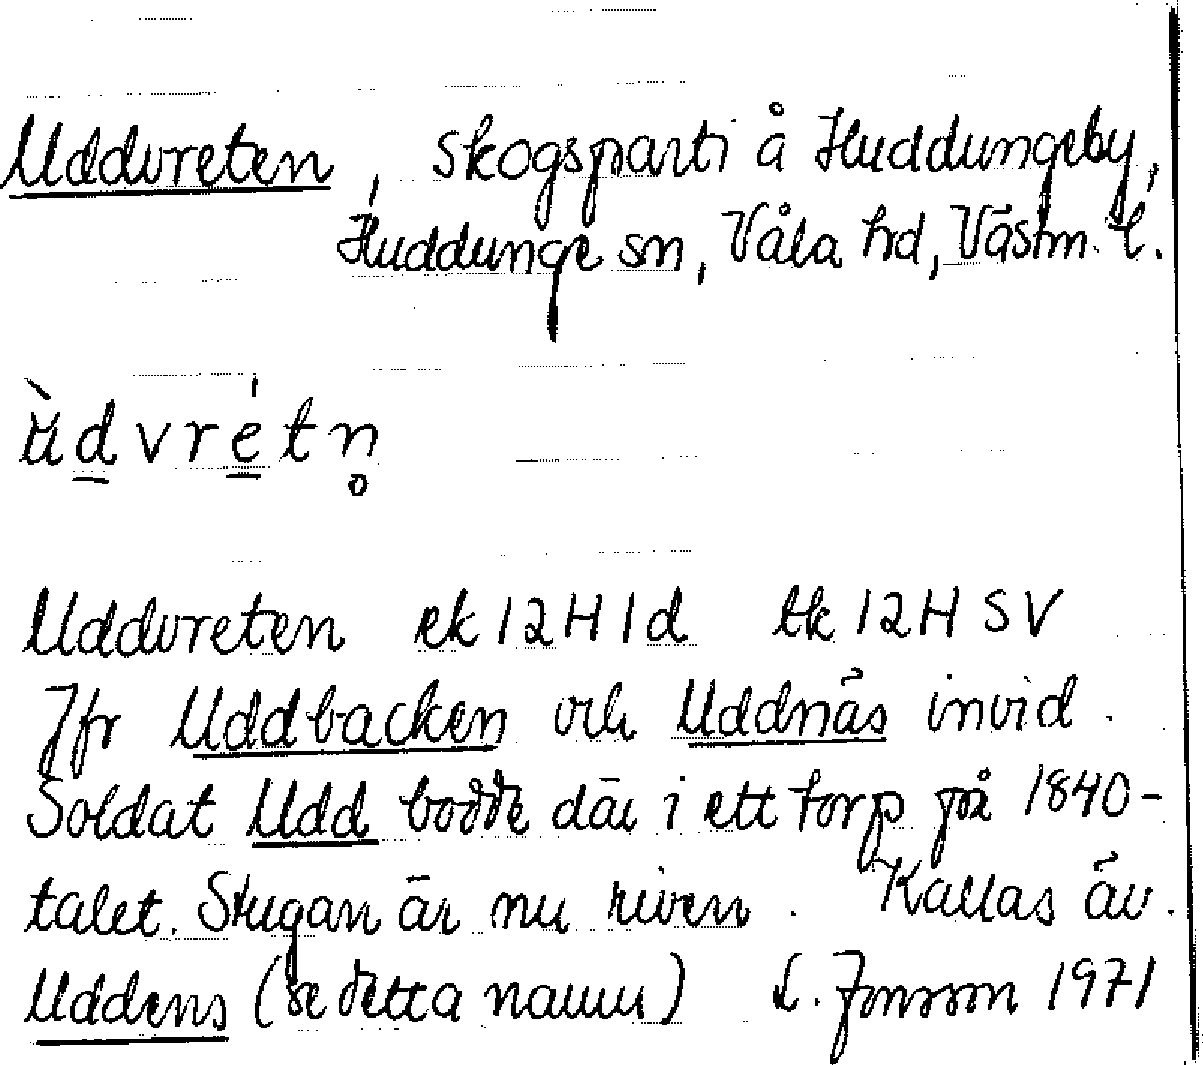 Uddvreten, skogsparti å Huddungeby,
Huddunge sn, Våla hd, Västm. l.
ù̈dvrétn̥
Uddvreten ek 12H1d tk 12H SV
Jfr Uddbacken och Uddnäs invid.
Soldat Udd bodde där i ett torp på 1840-
talet. Stugan är nu riven. Kallas äv.
Uddens (se detta namn) L. Jonsson 1971